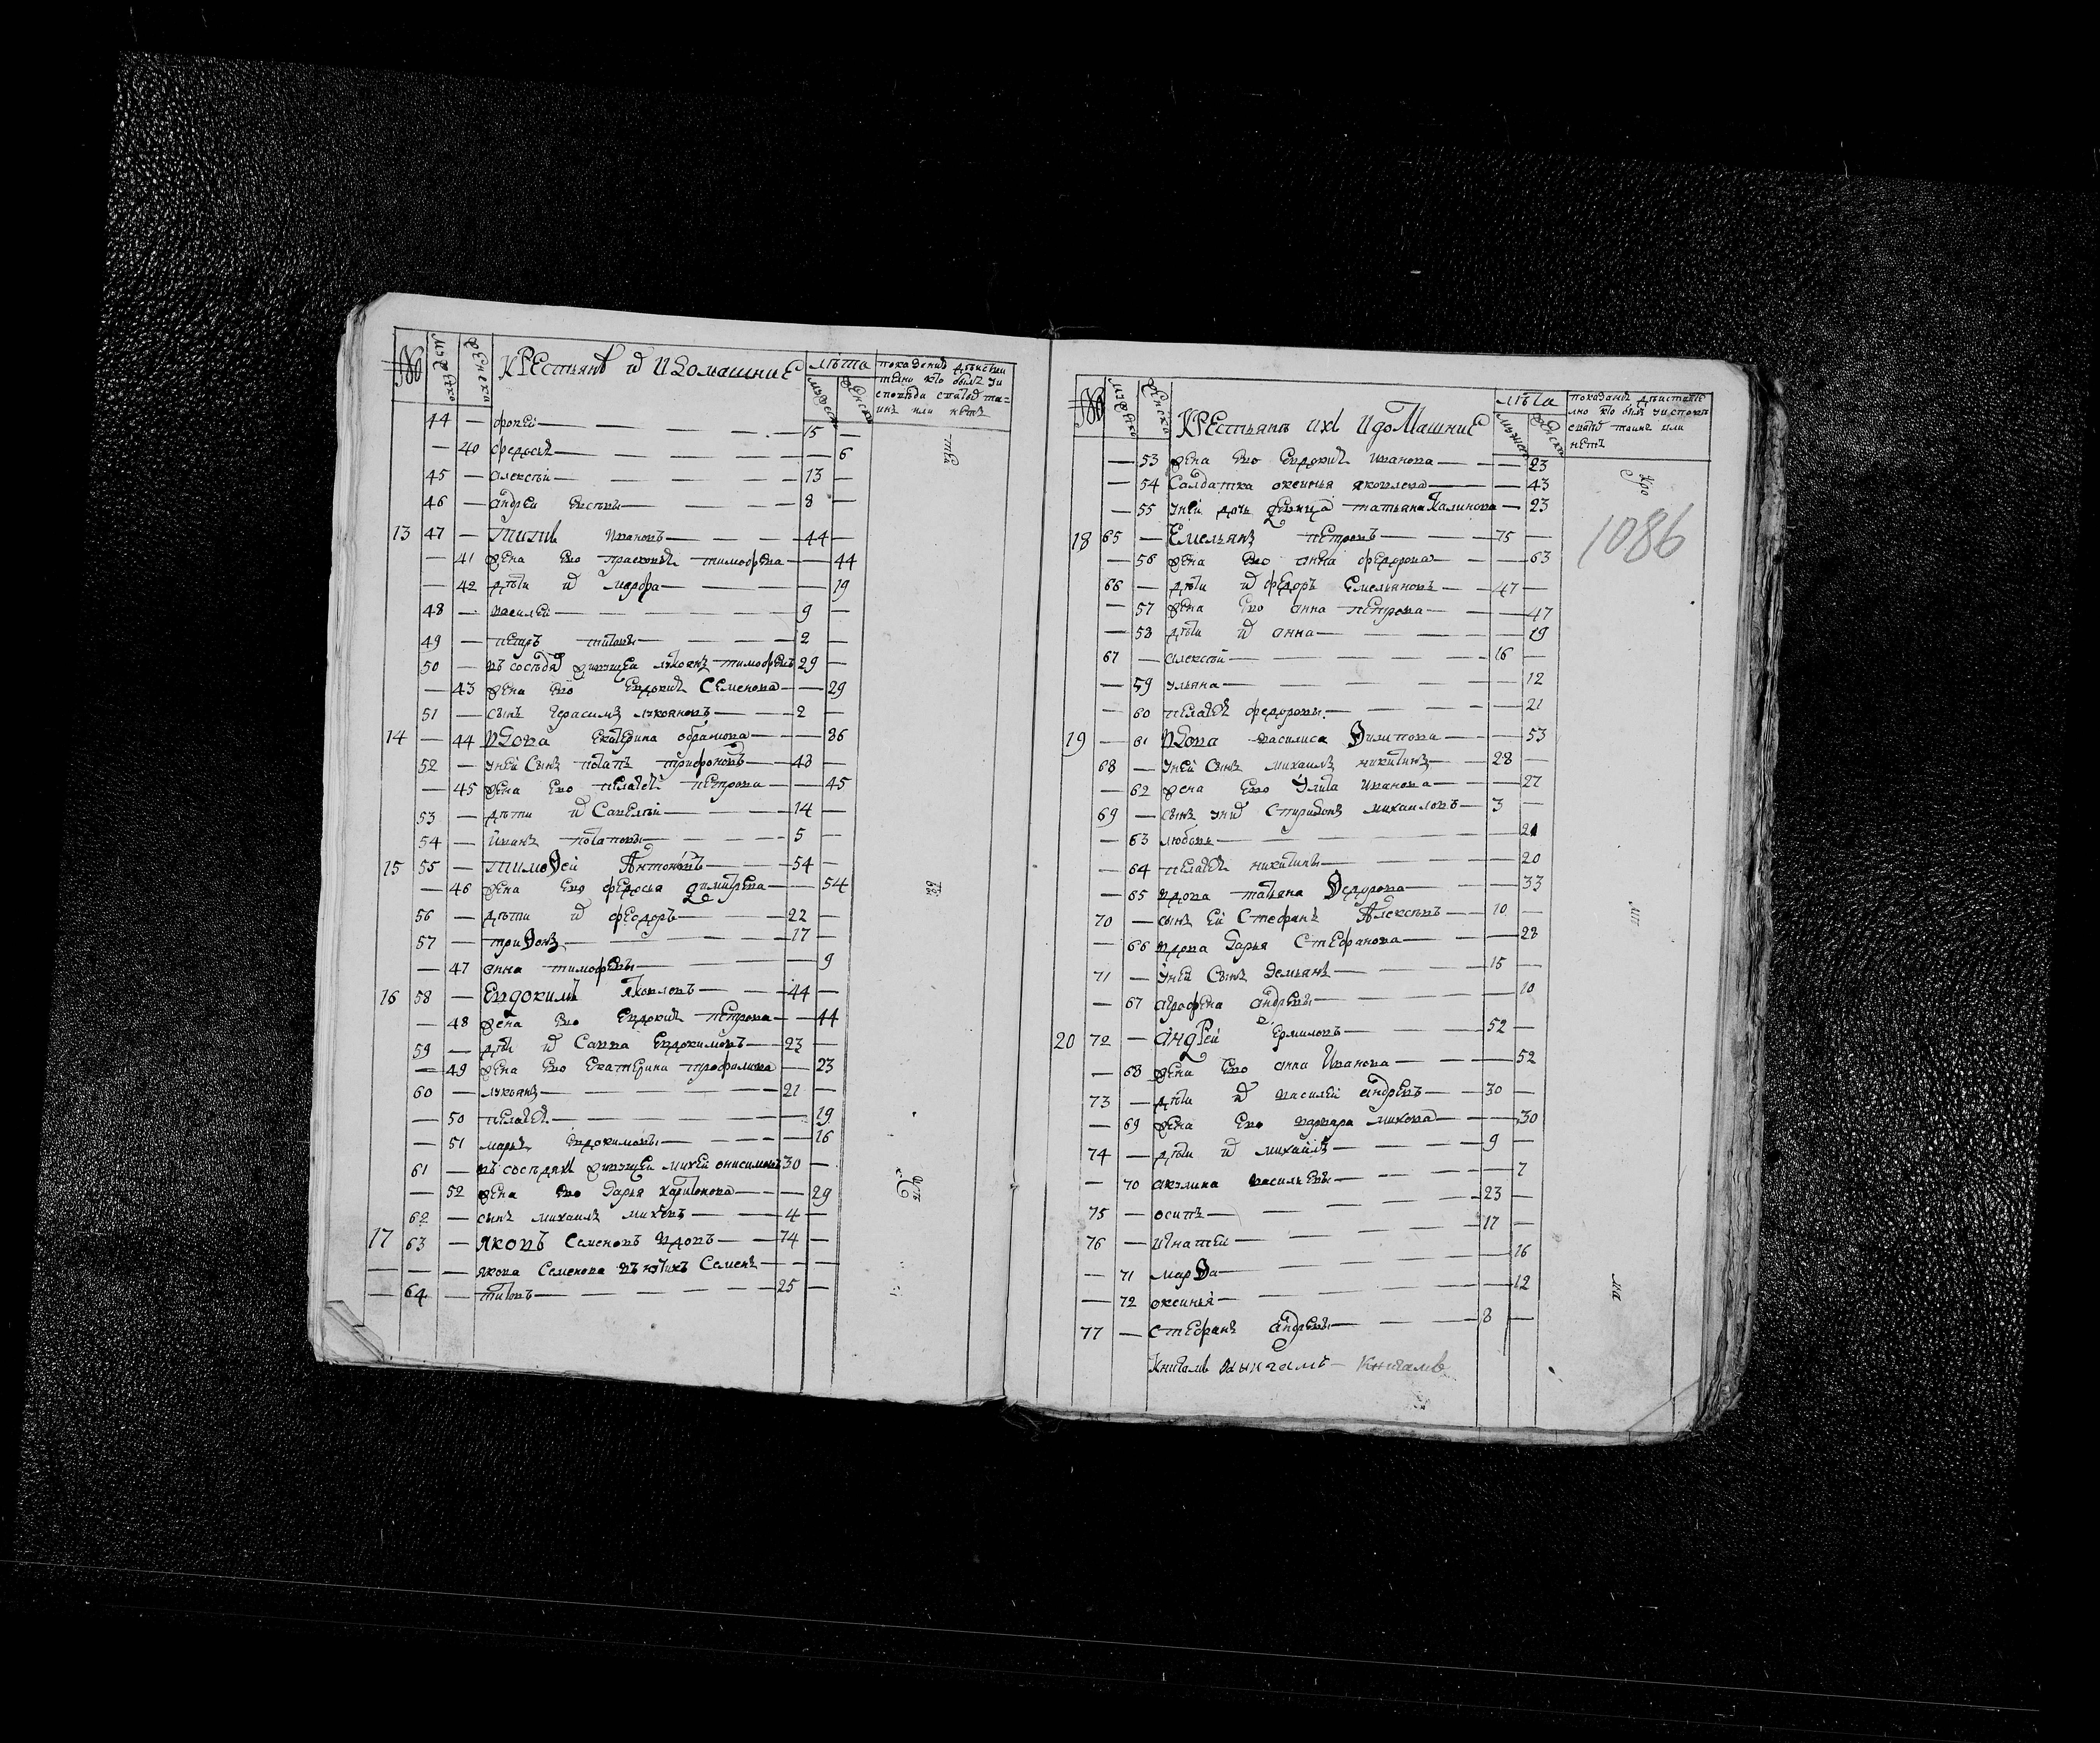 № мужеска женска КРЕстьянѣ ихъ И домашниЕ лѣта мужеск женска показаниѣ дѣистви
телно кто былъ у и
споведи с̃тыхъ та=
инъ или нѣтъ
44 — фокеи — 15 —
— 40 федосья — — 6
45 — алексѣи — 13 —
46 — андреи Евсѣевы — 8 —
13 47 — Титъ Ивановъ — 44 —
— 41 жена Ево прасковья тимофѣева — — 44
— 42 дѣти их марфа — — 19
48 — василеи — 9 —
49 — петръ титовы — 2 —
50 — въ сосѣдяхъ живущеи лукоянъ тимофѣевъ 29 —
— 43 жена Ево Евдокия Семенова — — 29
51 — сынъ Герасимъ лукояновъ — 2 —
14 — 44 вдова Екатерина обрамова — — 86
52 — у неи Сынъ потапъ трифоновъ — 43 —
— 45 жена Ево пелагея петрова — — 45
53 — дѣти их Савелѣи — 14 —
54 — Иванъ потаповы — 5 —
15 55 — Тимоѳеи Антоновъ — 54 —
— 46 жена Ево федосья димитрева — — 54
56 — дѣти их феодоръ — 22 —
57 — триѳонъ — 17 —
— 47 анна тимофѣевы — — 9
16 58 — Евдокимъ яковлевъ — 44 —
— 48 жена Ево Евдокия петрова — — 44
59 — дѣти их Савва Евдокимовъ — 23 —
— 49 жена Ево Екатерина трофимова — — 23
60 — лукьянъ — 21 —
— 50 пелагея — — 19
— 51 марья Евдокимовы — — 16
61 — въ сосѣдяхъ живущеи михеи онисимовъ 30 —
— 52 жена Ево дарья харитонова — — 29
62 — сынъ михаилъ михѣевъ — 4 —
17 63 — яковъ Семеновъ вдовъ — 74 —
— — — якова Семенова внукъ Семенъ — —
— 64 — титовъ — 25 —
№ мужеска женска КРЕстьянъ ихъ И домашниЕ лѣта мужеск женска показаниѣ дѣиствите
лно кто былъ у исповѣ
с̃тыхъ таинъ или
нѣтъ
— 53 жена Ево Евдокия Иванова — — 23
— 54 Салдатка оксинья яковлева — — 43
— 55 у неи дочь девица татьяна Калинова — 23
1086
18 65 — Емельянъ петровъ — 75 —
— 56 жена Ево анна федорова — — 63
66 — дѣти их федоръ Емельяновъ — 47 —
— 57 жена Ево анна петрова — — 47
— 58 дѣти их анна — — 19
67 — алексѣи — 16 —
— 59 ульяна — — 12
— 60 пелагея федоровы — — 21
19 — 61 вдова василиса Ѳилипова — — 53
68 — у неи Сынъ михаилъ никитинъ — 28 —
— 62 жена Ево Улита Иванова — — 27
69 — сынъ у них Спиридонъ михаиловъ — 3 —
— 63 любовь — — 21
— 64 пелагея никитины — — 20
— 65 вдова татьяна Ѳедорова — — 33
70 — сынъ Еи Стефанъ Алексѣевъ — 10 —
— 66 вдова дарья Стефанова — — 28
71 — у неи Сынъ демьянъ — 15 —
— 67 аграфена андрѣевы — — 10
20 72 — андреи Ермиловъ — 52 —
— 68 жена Ево анна Иванова — — 52
73 — дѣти их василеи андрѣевъ — 30 —
— 69 жена Ево варвара михеева — — 30
74 — дѣти их михаилъ — 9 —
— 70 акулина васильевы — — 7
75 — осипъ — 23 —
76 — игнатеи — 17 —
— 71 марѳа — — 16
— 72 оксинья — — 12
77 — стефанъ андрѣевы — 8 —